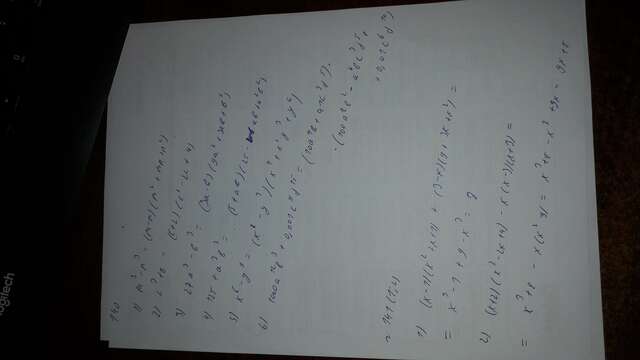 logitech
140
1) m³-n³ = (m-n)(m²+mn+n²)
2) c³+8 = (c+2)(c²-2c+4)
3) 27a³-b³ = (3a-b)(9a²+3ab+b²)
4) 125+a³b³ = (5+ab)(25-5ab+a²b²)
5) x⁶-y⁹ = (x²-y³)(x⁴+x²y³+y⁶)
6) 1000a¹²b³+0,001c⁹d¹⁵ = (10a⁴b+0,1c³d⁵)·
·(100a⁸b²-a⁴bc³d⁵+
+0,01c⁶d¹⁰)
n 141(1,2)
1) (x-1)(x²+x+1) + (3-x)(9+3x+x²) =
= x³-1+9-x³= 8
2) (x+2)(x²-2x+4) - x(x-3)(x+3) =
= x³+8 - x(x²-9) = x³+8-x³+9x = 9x+8